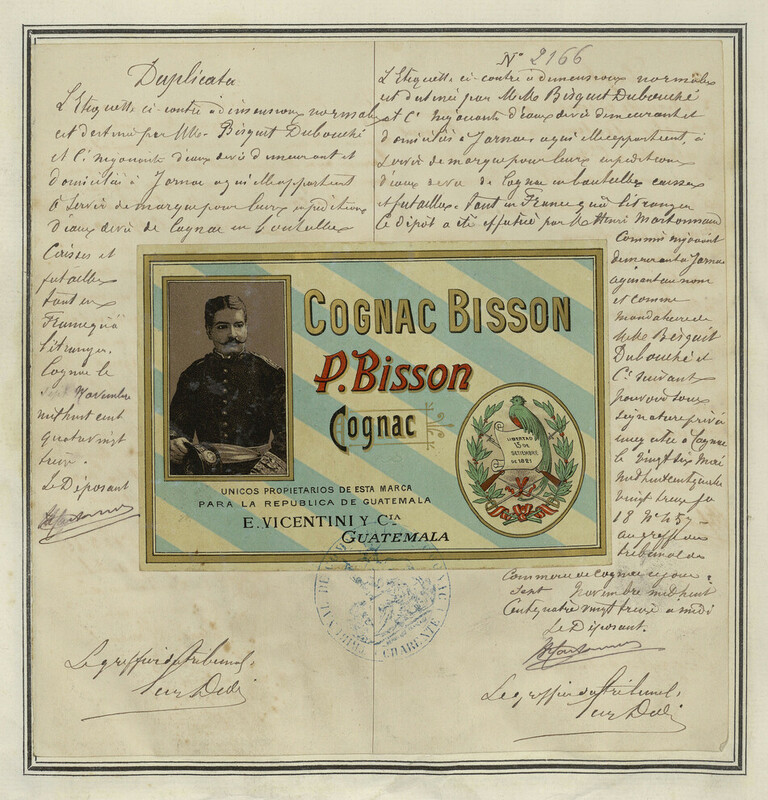 Duplicata
L'Etiquette ci-contre à dimensions normales
est destinée par MM. Bisquit Dubouché
et Cie négociants d'eaux de vie demeurant et
domiciliés à Jarnac a qui elle appartient
à servir de marque pour leurs expéditions
d'eaux de vie de Cognac en bouteilles
Caisses et
futailles
tant en
France qu'à
l'étranger.
Cognac le
Sept Novembre
mil huit cent
quatre vingt
treize.
Le Déposant
Le greffier du tribunal,
N° 2166
L'Etiquette ci-contre à dimensions normales
est destinée par MM. Bisquit Dubouché
et Cie négociants d'eaux de vie demeurant et
domiciliés à Jarnac, a qui elle appartient, à
servir de marque pour leurs expéditions
d'eaux de vie de Cognac en bouteilles caisses
et futailles, tant en France qu'à l'étranger
Ce dépôt a été effectué par M. Henri
Commis négociant
demeurant à Jarnac
agissant au nom
et comme
mandataire de
MM. Bisquit
Dubouché et
Cie suivant
pouvoir sous
signature privée
en date à Cognac
le vingt six Mai
mil huit cent quatre
vingt treize
18 N° 457
au greffe du
tribunal de
Commerce de Cognac ce jour
Sept Novembre mil huit
Cent quatre vingt treize à midi
Le Déposant.
Le greffier du tribunal,
COGNAC BISSON
P. Bisson
Cognac
LIBERTAD
15 DE
SETIEMBRE
DE 1821
UNICOS PROPIETARIOS DE ESTA MARCA
PARA LA REPUBLICA DE GUATEMALA
E. VICENTINI Y CIA
GUATEMALA
CHARENTE